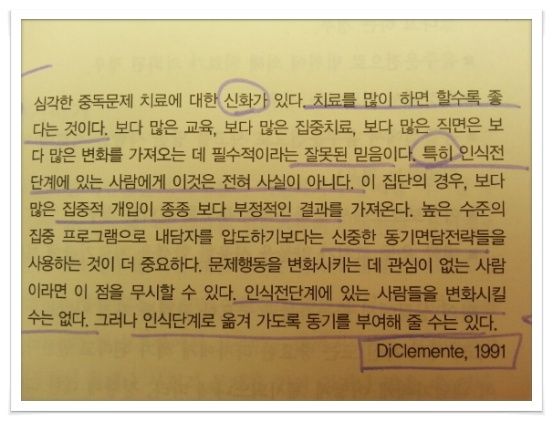 심각한 중독문제 치료에 대한 신화가 있다. 치료를 많이 하면 할수록 좋
다는 것이다. 보다 많은 교육, 보다 많은 집중치료, 보다 많은 직면은 보
다 많은 변화를 가져오는 데 필수적이라는 잘못된 믿음이다. 특히 인식전
단계에 있는 사람에게 이것은 전혀 사실이 아니다. 이 집단의 경우, 보다
많은 집중적 개입이 종종 보다 부정적인 결과를 가져온다. 높은 수준의
집중 프로그램으로 내담자를 압도하기보다는 신중한 동기면담전략들을
사용하는 것이 더 중요하다. 문제행동을 변화시키는 데 관심이 없는 사람
이라면 이 점을 무시할 수 있다. 인식전단계에 있는 사람들을 변화시킬
수는 없다. 그러나 인식단계로 옮겨 가도록 동기를 부여해 줄 수는 있다.
DiClemente, 1991